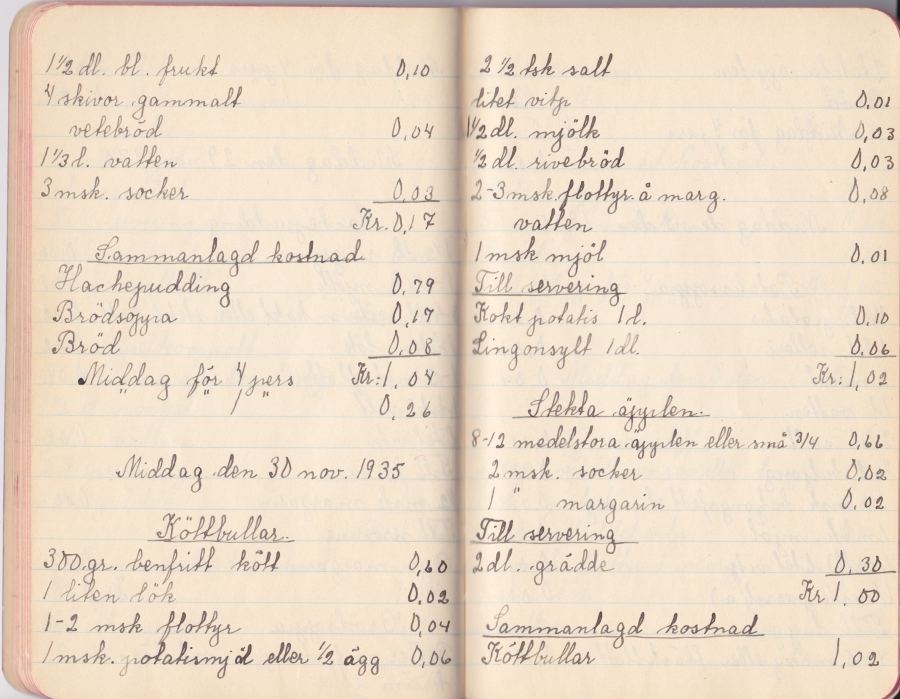 1 1/2 dl. bl. frukt 0,10
4 skivor gammalt
vetebröd 0,04
1 1/3 l. vatten
3 msk. socker 0,03
Kr. 0,17
Sammanlagd kostnad
Hachepudding 0,79
Brödsoppa 0,17
Bröd 0,08
Middag för 4 pers Kr: 1,04
" " 1 " 0,26
Middag den 30 nov. 1935
Köttbullar.
300 gr. benfritt kött 0,60
1 liten lök 0,02
1-2 msk flottyr 0,04
1 msk. potatismjöl eller 1/2 ägg 0,06
2 1/2 tsk salt
litet vitp 0,01
1 1/2 dl. mjölk 0,03
1/2 dl. rivebröd 0,03
2-3 msk. flottyr å marg. 0,08
vatten
1 msk mjöl 0,01
Till servering
Kokt potatis 1 l. 0,10
Lingonsylt 1 dl. 0,06
Kr: 1,02
Stekta äpplen.
8-12 medelstora äpplen eller små 3/4 0,66
2 msk. socker 0,02
1 " margarin 0,02
Till servering
2 dl. grädde 0,30
Kr 1.00
Sammanlagd kostnad
Köttbullar 1,02